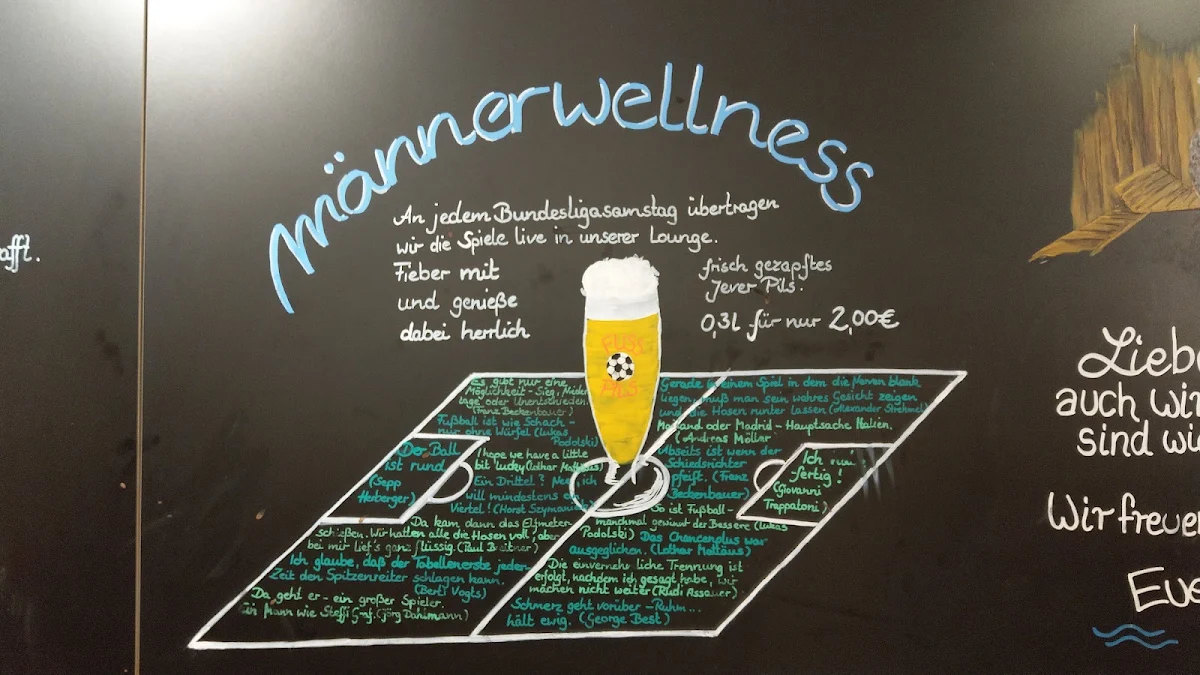 afft.
männerwellness
An jedem Bundesligasamstag übertragen
wir die Spiele live in unserer Lounge.
Fieber mit
und genieße
dabei herrlich
frisch gezapftes
Jever Pils.
0,3l für nur 2,00€
FUSS
PILS
Es gibt nur eine
Möglichkeit - Sieg, Nieder
lage oder Unentschieden
(Franz Beckenbauer)
Fußball ist wie Schach -
nur ohne Würfel (Lukas
Podolski)
Der Ball
ist rund
(Sepp
Herberger)
I hope we have a little
bit lucky (Lothar Mattäus)
Ein Drittel? Nee, ich
will mindestens ein
Viertel! (Horst Szymaniak)
Da kam dann das Elfmeter-
schießen. Wir hatten alle die Hosen voll, aber
bei mir lief's ganz flüssig. (Paul Breitner)
Ich glaube, daß der Tabellenerste jeder
Zeit den Spitzenreiter schlagen kann.
(Berti Vogts)
Da geht er - ein großer Spieler.
Ein Mann wie Steffi Graf. (Jörg Dahlmann)
Gerade in einem Spiel in dem die Nerven blank
liegen, muß man sein wahres Gesicht zeigen
und die Hosen runter lassen (Alexander Strehmel)
Mailand oder Madrid - Hauptsache Italien.
(Andreas Möller
Abseits ist wenn der
Schiedsrichter
pfeift. (Franz
Beckenbauer)
Ich
fertig!
(Giovanni
Trappatoni)
So ist Fußball -
manchmal gewinnt der Bessere (Lukas
Podolski)
Das Chancenplus war
ausgeglichen. (Lothar Mattäus)
Die einvernehmliche Trennung ist
erfolgt, nachdem ich gesagt habe, wir
machen nicht weiter (Rudi Assauer)
Schmerz geht vorüber - Ruhm...
hält ewig. (George Best)
Liebe
auch wir
sind wi
Wir freuen
Eue